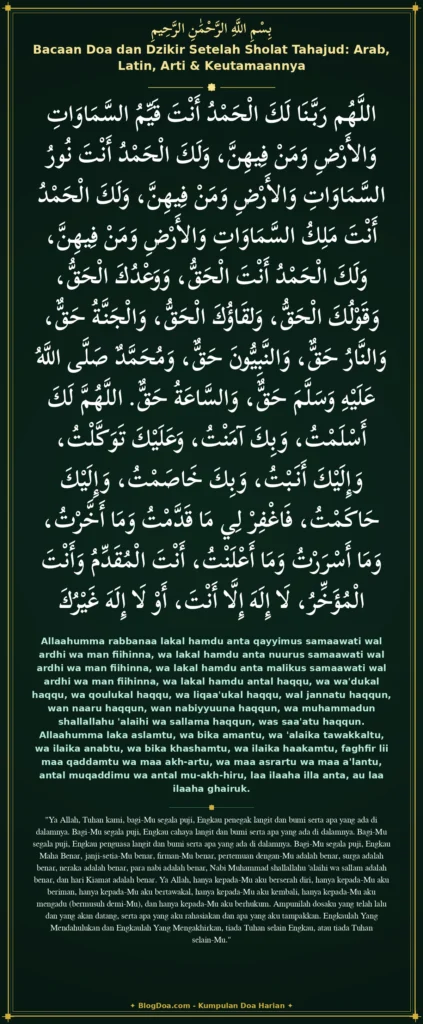 بِسْمِ اللَّهِ الرَّحْمَٰنِ الرَّحِيمِ
Bacaan Doa dan Dzikir Setelah Sholat Tahajud: Arab,
Latin, Arti & Keutamaannya
اللَّهُم رَبَّنَا لَكَ الْحَمْدُ أَنْتَ قَيِّمُ السَّمَاوَاتِ
وَالأَرْضِ وَمَنْ فِيهِنَّ، وَلَكَ الْحَمْدُ أَنْتَ نُورُ
السَّمَاوَاتِ وَالأَرْضِ وَمَنْ فِيهِنَّ، وَلَكَ الْحَمْدُ
أَنْتَ مَلِكُ السَّمَاوَاتِ وَالأَرْضِ وَمَنْ فِيهِنَّ،
وَلَكَ الْحَمْدُ أَنْتَ الْحَقُّ، وَوَعْدُكَ الْحَقُّ،
وَقَوْلُكَ الْحَقُّ، وَلِقَاؤُكَ الْحَقُّ، وَالْجَنَّةُ حَقٌّ،
وَالنَّارُ حَقٌّ، وَالنَّبِيُّونَ حَقٌّ، وَمُحَمَّدٌ صَلَّى اللَّهُ
عَلَيْهِ وَسَلَّمَ حَقٌّ، وَالسَّاعَةُ حَقٌّ. اللَّهُمَّ لَكَ
أَسْلَمْتُ، وَبِكَ آمَنْتُ، وَعَلَيْكَ تَوَكَّلْتُ،
وَإِلَيْكَ أَنَبْتُ، وَبِكَ خَاصَمْتُ، وَإِلَيْكَ
حَاكَمْتُ، فَاغْفِرْ لِي مَا قَدَّمْتُ وَمَا أَخَّرْتُ،
وَمَا أَسْرَرْتُ وَمَا أَعْلَنْتُ، أَنْتَ الْمُقَدِّمُ وَأَنْتَ
الْمُؤَخِّرُ، لَا إِلَهَ إِلَّا أَنْتَ، أَوْ لَا إِلَهَ غَيْرُكَ
Allaahumma rabbanaa lakal hamdu anta qayyimus samaawati wal
ardhi wa man fiihinna, wa lakal hamdu anta nuurus samaawati wal
ardhi wa man fiihinna, wa lakal hamdu anta malikus samaawati wal
ardhi wa man fiihinna, wa lakal hamdu antal haqqu, wa wa'dukal
haqqu, wa qoulukal haqqu, wa liqaa'ukal haqqu, wal jannatu haqqun,
wan naaru haqqun, wan nabiyyuuna haqqun, wa muhammadun
shallallahu 'alaihi wa sallama haqqun, was saa'atu haqqun.
Allaahumma laka aslamtu, wa bika amantu, wa 'alaika tawakkaltu,
wa ilaika anabtu, wa bika khashamtu, wa ilaika haakamtu, faghfir lii
maa qaddamtu wa maa akh-artu, wa maa asrartu wa maa a'lantu,
antal muqaddimu wa antal mu-akh-hiru, laa ilaaha illa anta, au laa
ilaaha ghairuk.
"Ya Allah, Tuhan kami, bagi-Mu segala puji, Engkau penegak langit dan bumi serta apa yang ada di
dalamnya. Bagi-Mu segala puji, Engkau cahaya langit dan bumi serta apa yang ada di dalamnya. Bagi-Mu
segala puji, Engkau penguasa langit dan bumi serta apa yang ada di dalamnya. Bagi-Mu segala puji, Engkau
Maha Benar, janji-setia-Mu benar, firman-Mu benar, pertemuan dengan-Mu adalah benar, surga adalah
benar, neraka adalah benar, para nabi adalah benar, Nabi Muhammad shallallahu 'alaihi wa sallam adalah
benar, dan hari Kiamat adalah benar. Ya Allah, hanya kepada-Mu aku berserah diri, hanya kepada-Mu aku
beriman, hanya kepada-Mu aku bertawakal, hanya kepada-Mu aku kembali, hanya kepada-Mu aku
mengadu (bermusuh demi-Mu), dan hanya kepada-Mu aku berhukum. Ampunilah dosaku yang telah lalu
dan yang akan datang, serta apa yang aku rahasiakan dan apa yang aku tampakkan. Engkaulah Yang
Mendahulukan dan Engkaulah Yang Mengakhirkan, tiada Tuhan selain Engkau, atau tiada Tuhan
selain-Mu."
✦ BlogDoa.com - Kumpulan Doa Harian ✦